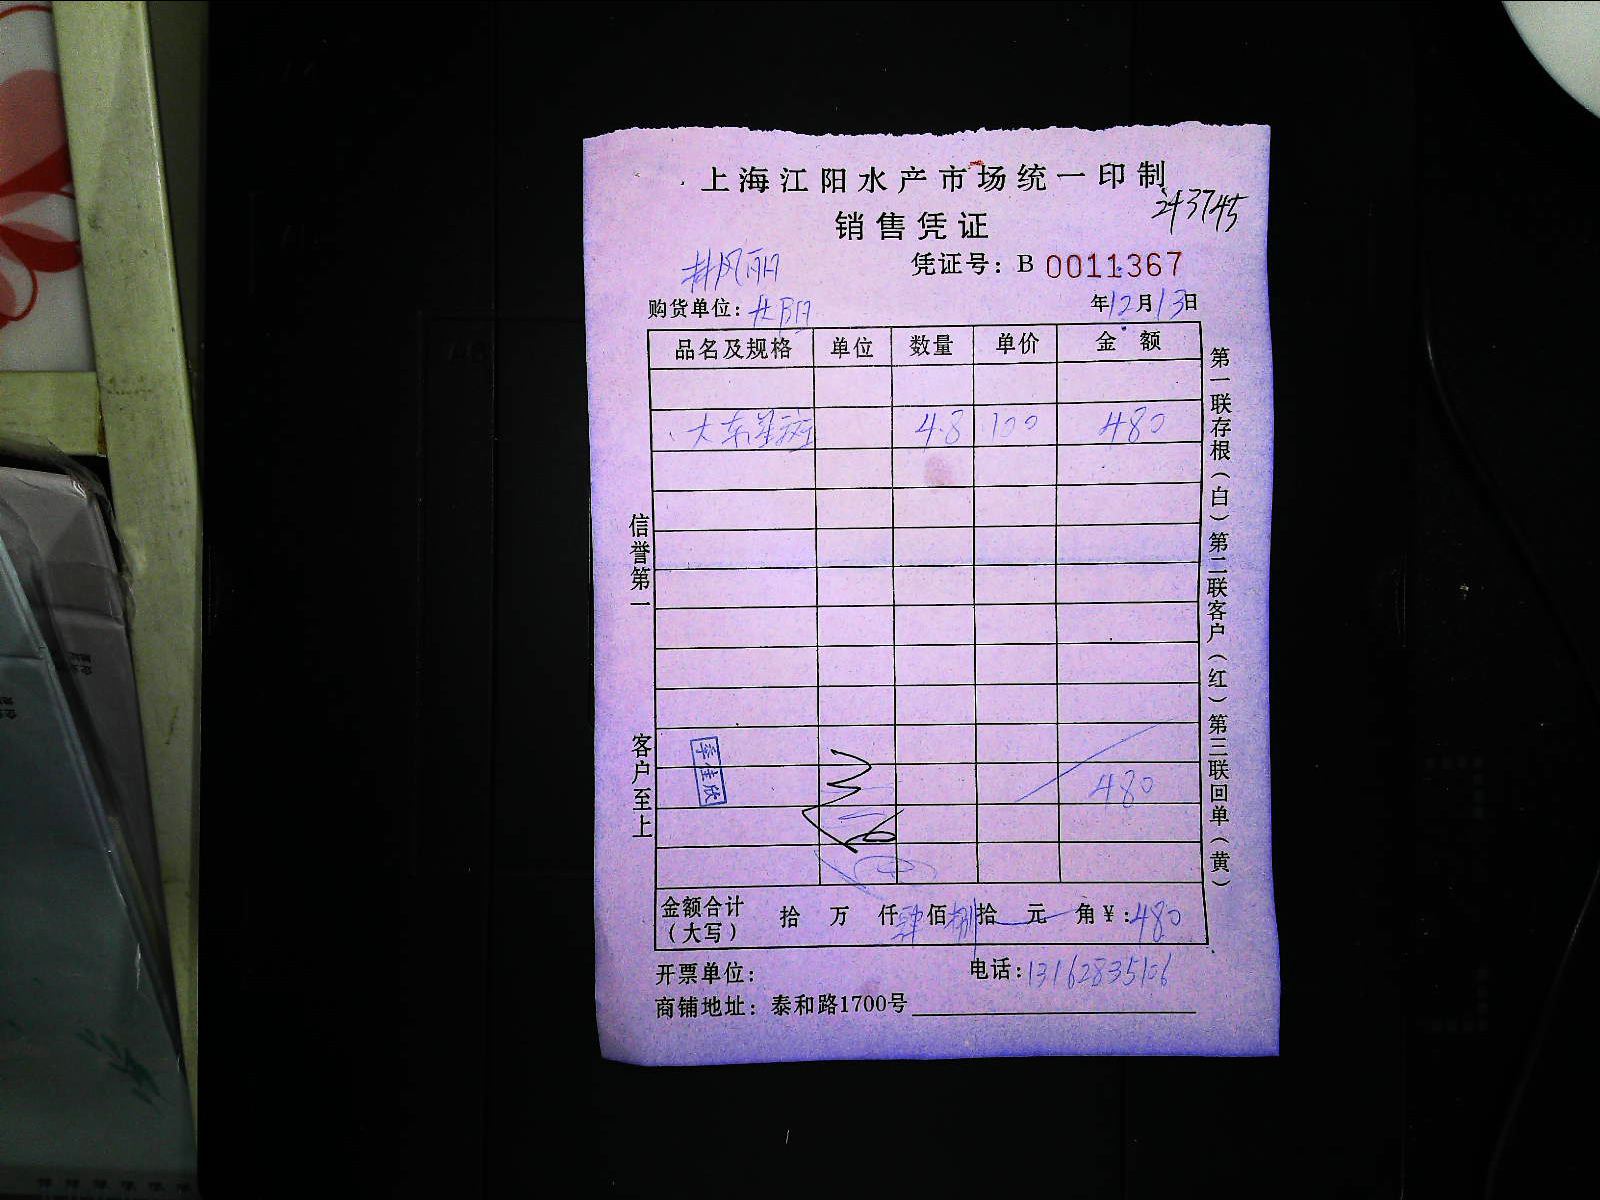 上海江阳水产市场统一印制
计3745
销售凭证
凭证号：B 0011367
购货单位：
年12月13日
品名及规格 单位 数量 单价 金额
大东星斑 4.8 100 480
480
金额合计（大写） 拾 万 仟肆佰捌拾 元 角￥:480
开票单位： 电话：13162835106
商铺地址：泰和路1700号
信誉第一
客户至上
第一联存根（白）第二联客户（红）第三联回单（黄）